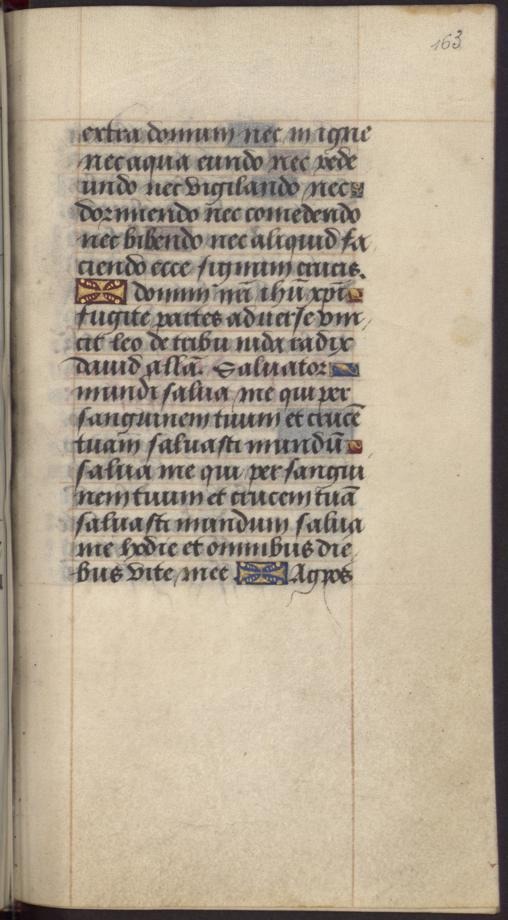 163
extra domum nec in igne
nec aqua eundo nec pede
undo nec vigilando nec
dormiendo nec comedendo
nec bibendo nec aliquid fa
ciendo ecce signum crucis.
domini nr̄i ihū xp̄i
fugite partes adverse vin
cit leo de tribu iuda radix
david allā. Salvator
mundi salva me qui per
sanguinem tuum et crucē
tuam salvasti mundū
salva me qui per sangui
nem tuum et crucem tuā
salvasti mundum salva
me hodie et omnibus die
bus vite mee Agyos